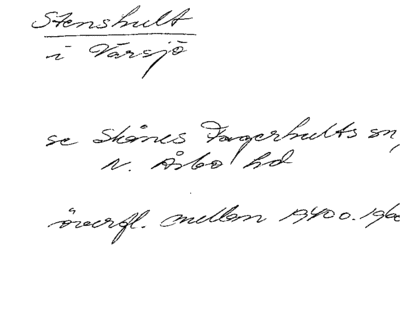 Stenshult
i Varsjö
se Skånes Fagerhults sn,
N. Åsbo hd
överfl. mellan 1940 o. 1960